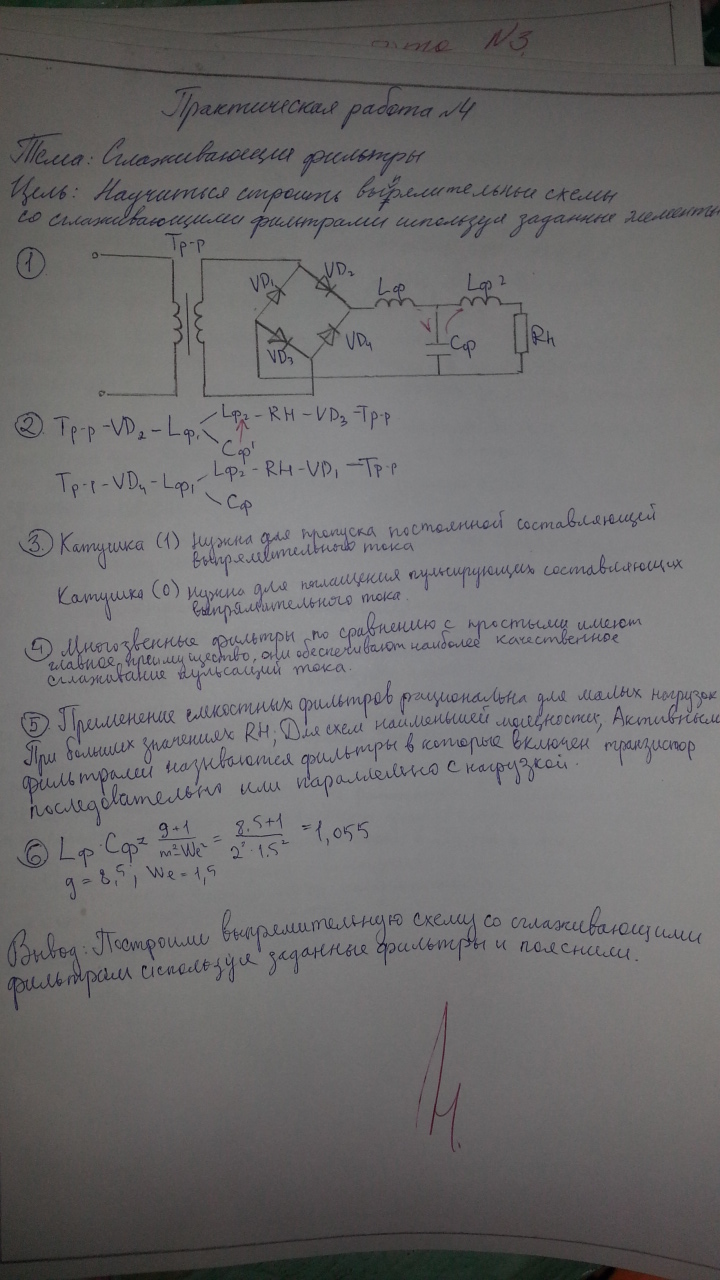 N3
Практическая работа №4
Тема: Сглаживающия фильтры
Цель: Научиться строить выпрямительные схемы
со сглаживающими фильтрами используя заданные элементы
1
Тр-р
VD1 VD2 Lф Lф2
VD3 VD4 Cф Rн
2 Тр-р -VD2 -Lф1 Lф2 -RH -VD3 -Тр-р
Cф1
Тр-р -VD4 -Lф1 Lф2 -RH -VD1 -Тр-р
Cф
3 Катушка (1) Нужна для пропуска постоянной составляющей
выпрямительного тока
Катушка (0) Нужна для поглащения пульсирующих составляющих
выпрямительного тока.
4 Многозвенные фильтры по сравнению с простыми имеют
главное преимущество, они обеспечивают наиболее качественное
сглаживание пульсаций тока.
5 Применение емкостных фильтров рациональна для малых нагрузок
При больших значениях RH; Для схем наименьшей мощности, Активными
фильтрами называются фильтры в которые включен транзистор
последовательно или параллельно с нагрузкой.
6 Lф·Cф= g+1/m²·We² = 8.5+1/2²·1.5² =1,055
g=8,5; We=1,5
Вывод: Построили выпрямительную схему со сглаживающими
фильтрами используя заданные фильтры и пояснили.